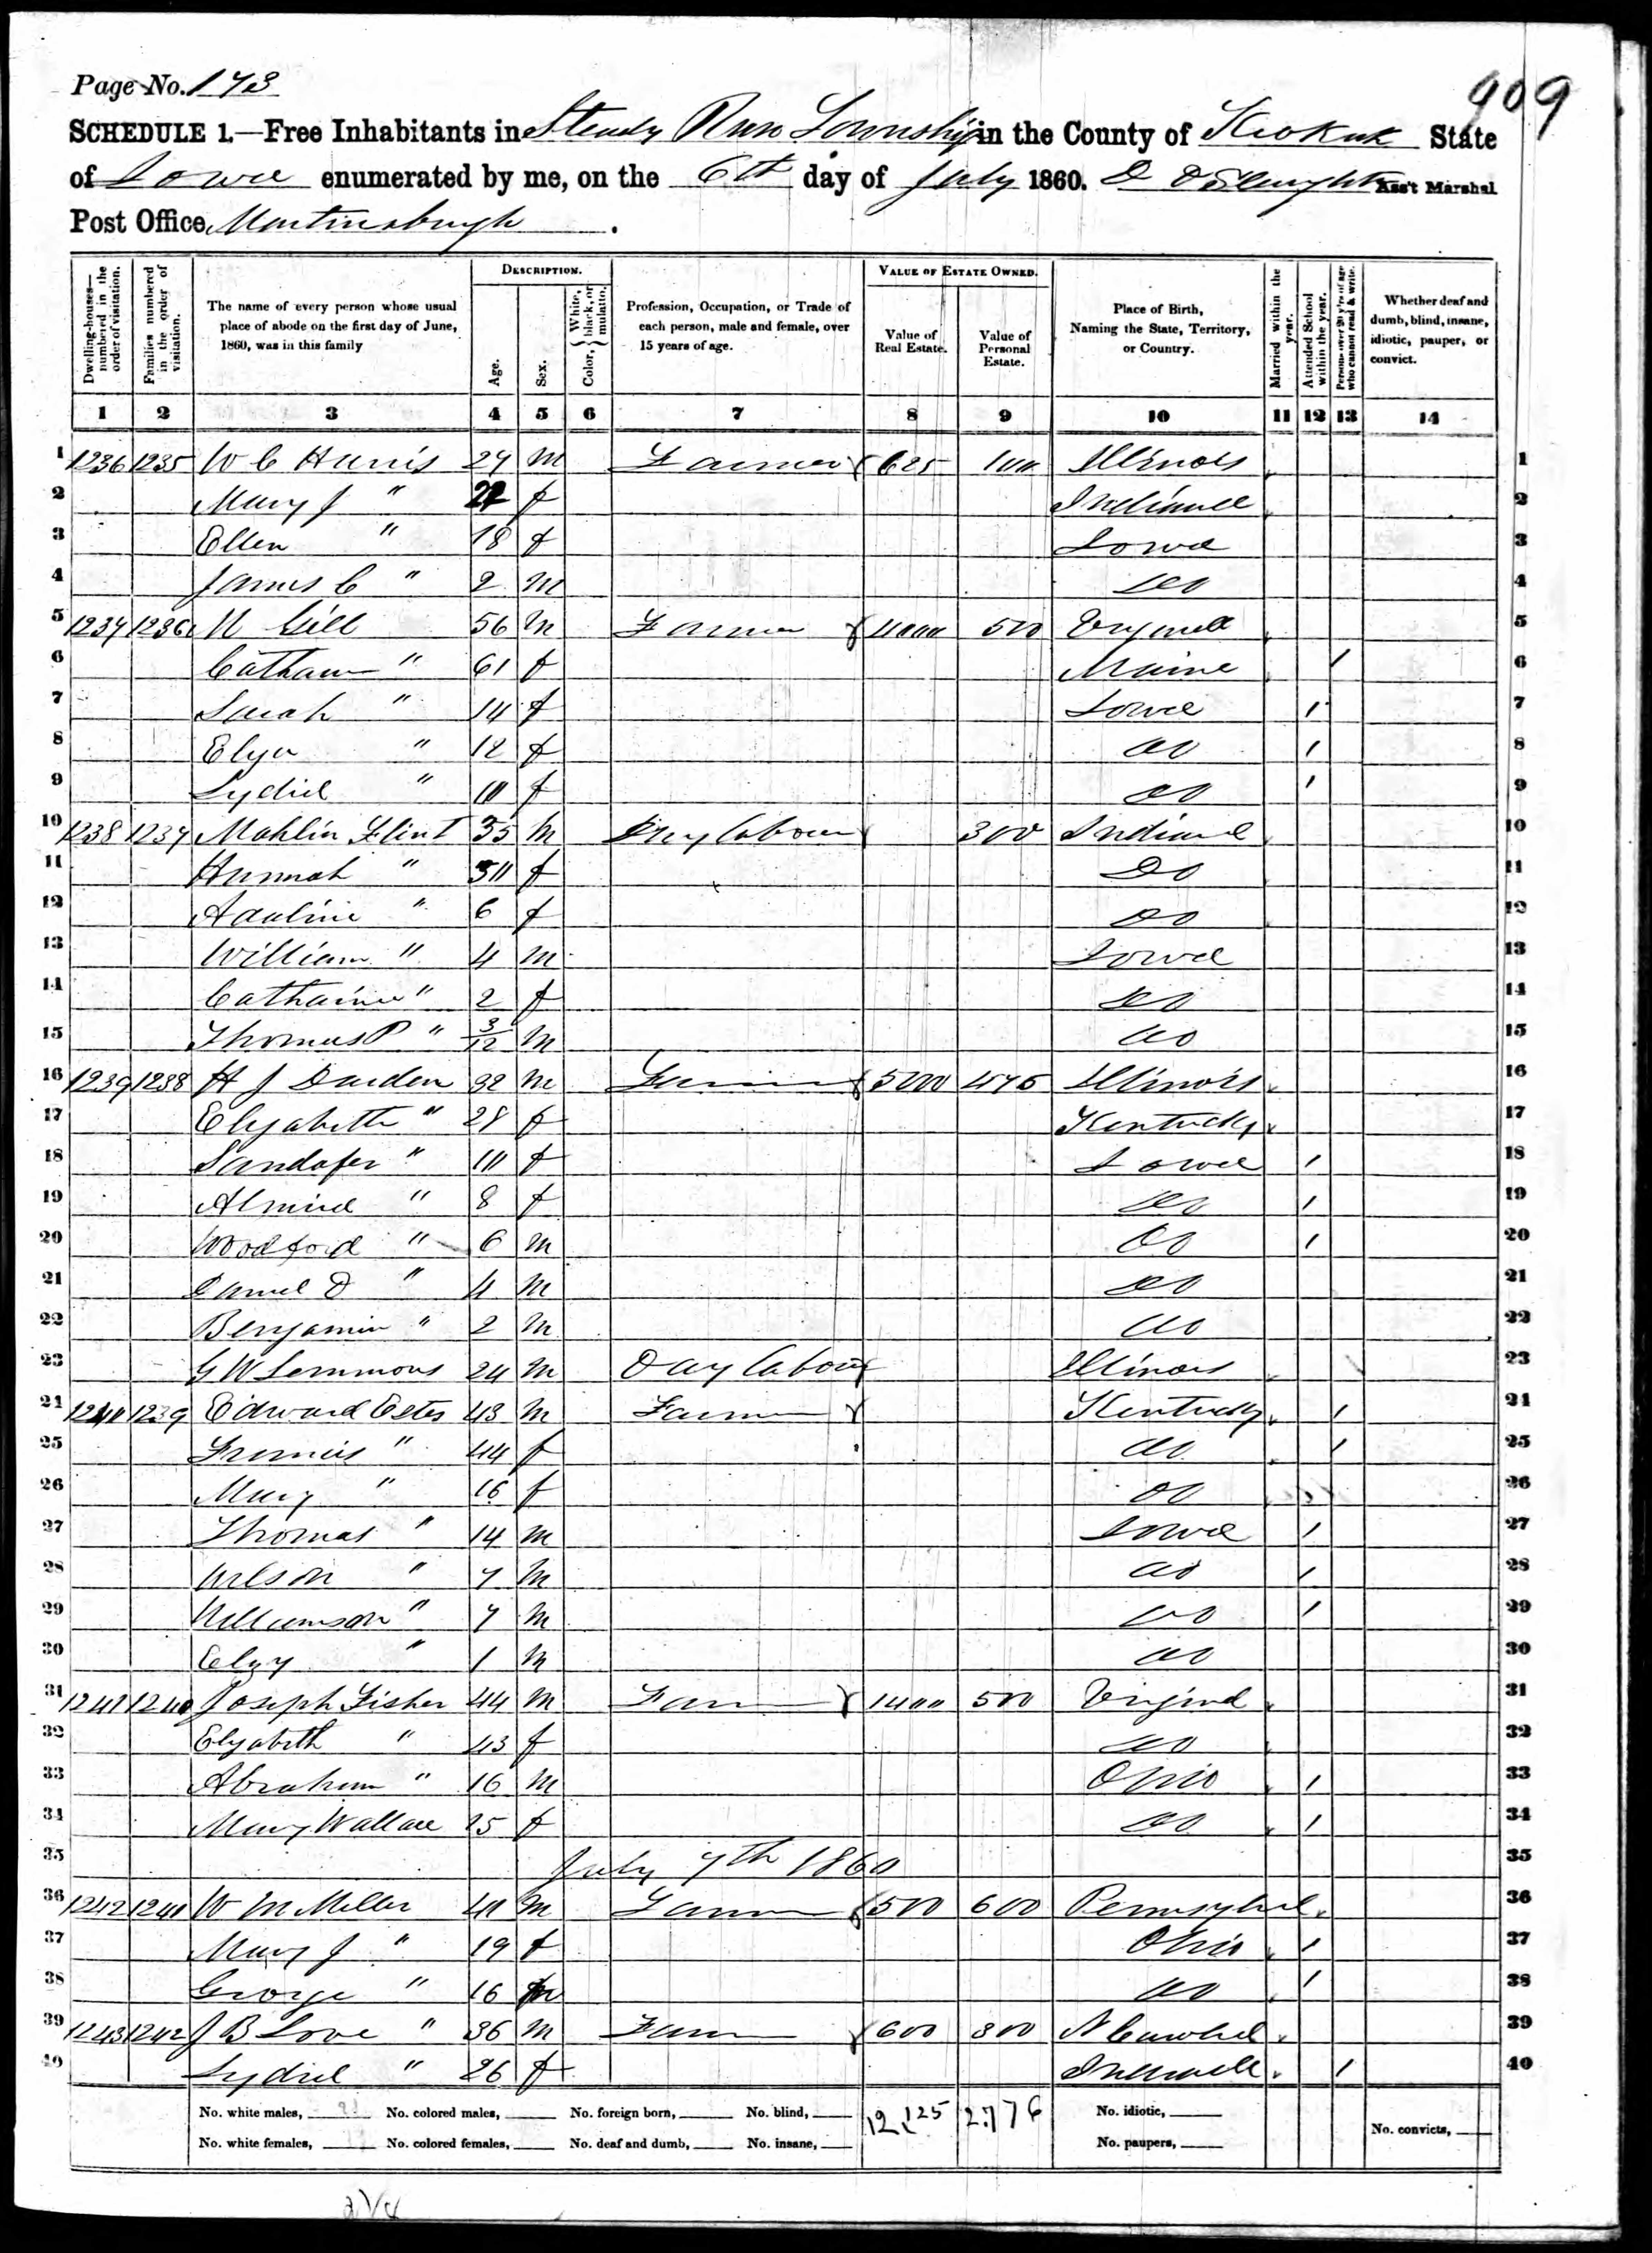 Page No. 173
909
SCHEDULE 1.—Free Inhabitants in Steady Run Township in the County of Keokuk State
of Iowa enumerated by me, on the 6th day of July 1860. Ass't Marshal
Post Office Martinsburgh.
DESCRIPTION. VALUE OF ESTATE OWNED.
Dwelling-houses—numbered in the order of visitation. Families numbered in the order of visitation. The name of every person whose usual place of abode on the first day of June, 1860, was in this family Age. Sex. Color, {White, black, or mulatto. Profession, Occupation, or Trade of each person, male and female, over 15 years of age. Value of Real Estate. Value of Personal Estate. Place of Birth, Naming the State, Territory, or Country. Married within the year. Attended School within the year. Persons over 20 y'rs of age who cannot read & write. Whether deaf and dumb, blind, insane, idiotic, pauper, or convict.
1 2 3 4 5 6 7 8 9 10 11 12 13 14
1 1236 1235 W C Harris 27 m Farmer 625 100 Illinois 1
2 Mary J " f Indiana 2
3 Ellen " f Iowa 3
4 James C " 2 m do 4
5 1237 1236 Gill 56 m Farmer 4000 500 5
6 " 61 f Maine / 6
7 Sarah " 14 f Iowa / 7
8 Elya " 12 f do / 8
9 Lydia " 10 f do / 9
10 1238 1237 Mahlin Flint 35 m Day labour 300 Indiana 10
11 Hannah " 30 f Do 11
12 Adaline " 6 f do 12
13 William " 4 m Iowa 13
14 Catharine " 2 f do 14
15 Thomas P " 3/12 m do 15
16 1239 1238 H J Darden 32 m Farmer 5000 476 Illinois 16
17 Elyabeth " 28 f Kentucky 17
18 " 10 f Iowa / 18
19 Almira " 8 f do / 19
20 Woodford " 6 m do / 20
21 Daniel D " 4 m do 21
22 Benjamin " 2 m do 22
23 G W Lemmons 24 m Day labour Illinois 23
24 1240 1239 Edward Estes 43 m Farmer Kentucky / 24
25 Francis " 44 f do / 25
26 Mary " 16 f do 26
27 Thomas " 14 m Iowa / 27
28 Wilson " 7 m do / 28
29 Williamson " 7 m do / 29
30 Elzy " 1 m do 30
31 1241 1240 Joseph Fisher 44 m Farmer 1400 500 Virginia 31
32 Elyabeth " 43 f do 32
33 Abraham " 16 m Ohio / 33
34 Mary Wallace f do / 34
35 July 7th 1860 35
36 1242 1241 W M Miller m Farmer 500 600 Pennsylva 36
37 Mary J " 19 f Ohio / 37
38 George " 16 m do / 38
39 1243 1242 J B Love " 36 m Farmer 600 300 N Carolina 39
40 Lydia " 26 f Indiana / 40
No. white males, No. colored males, No. foreign born, No. blind, 12,125 2,776 No. idiotic,
No. white females, No. colored females, No. deaf and dumb, No. insane, No. paupers, No. convicts,